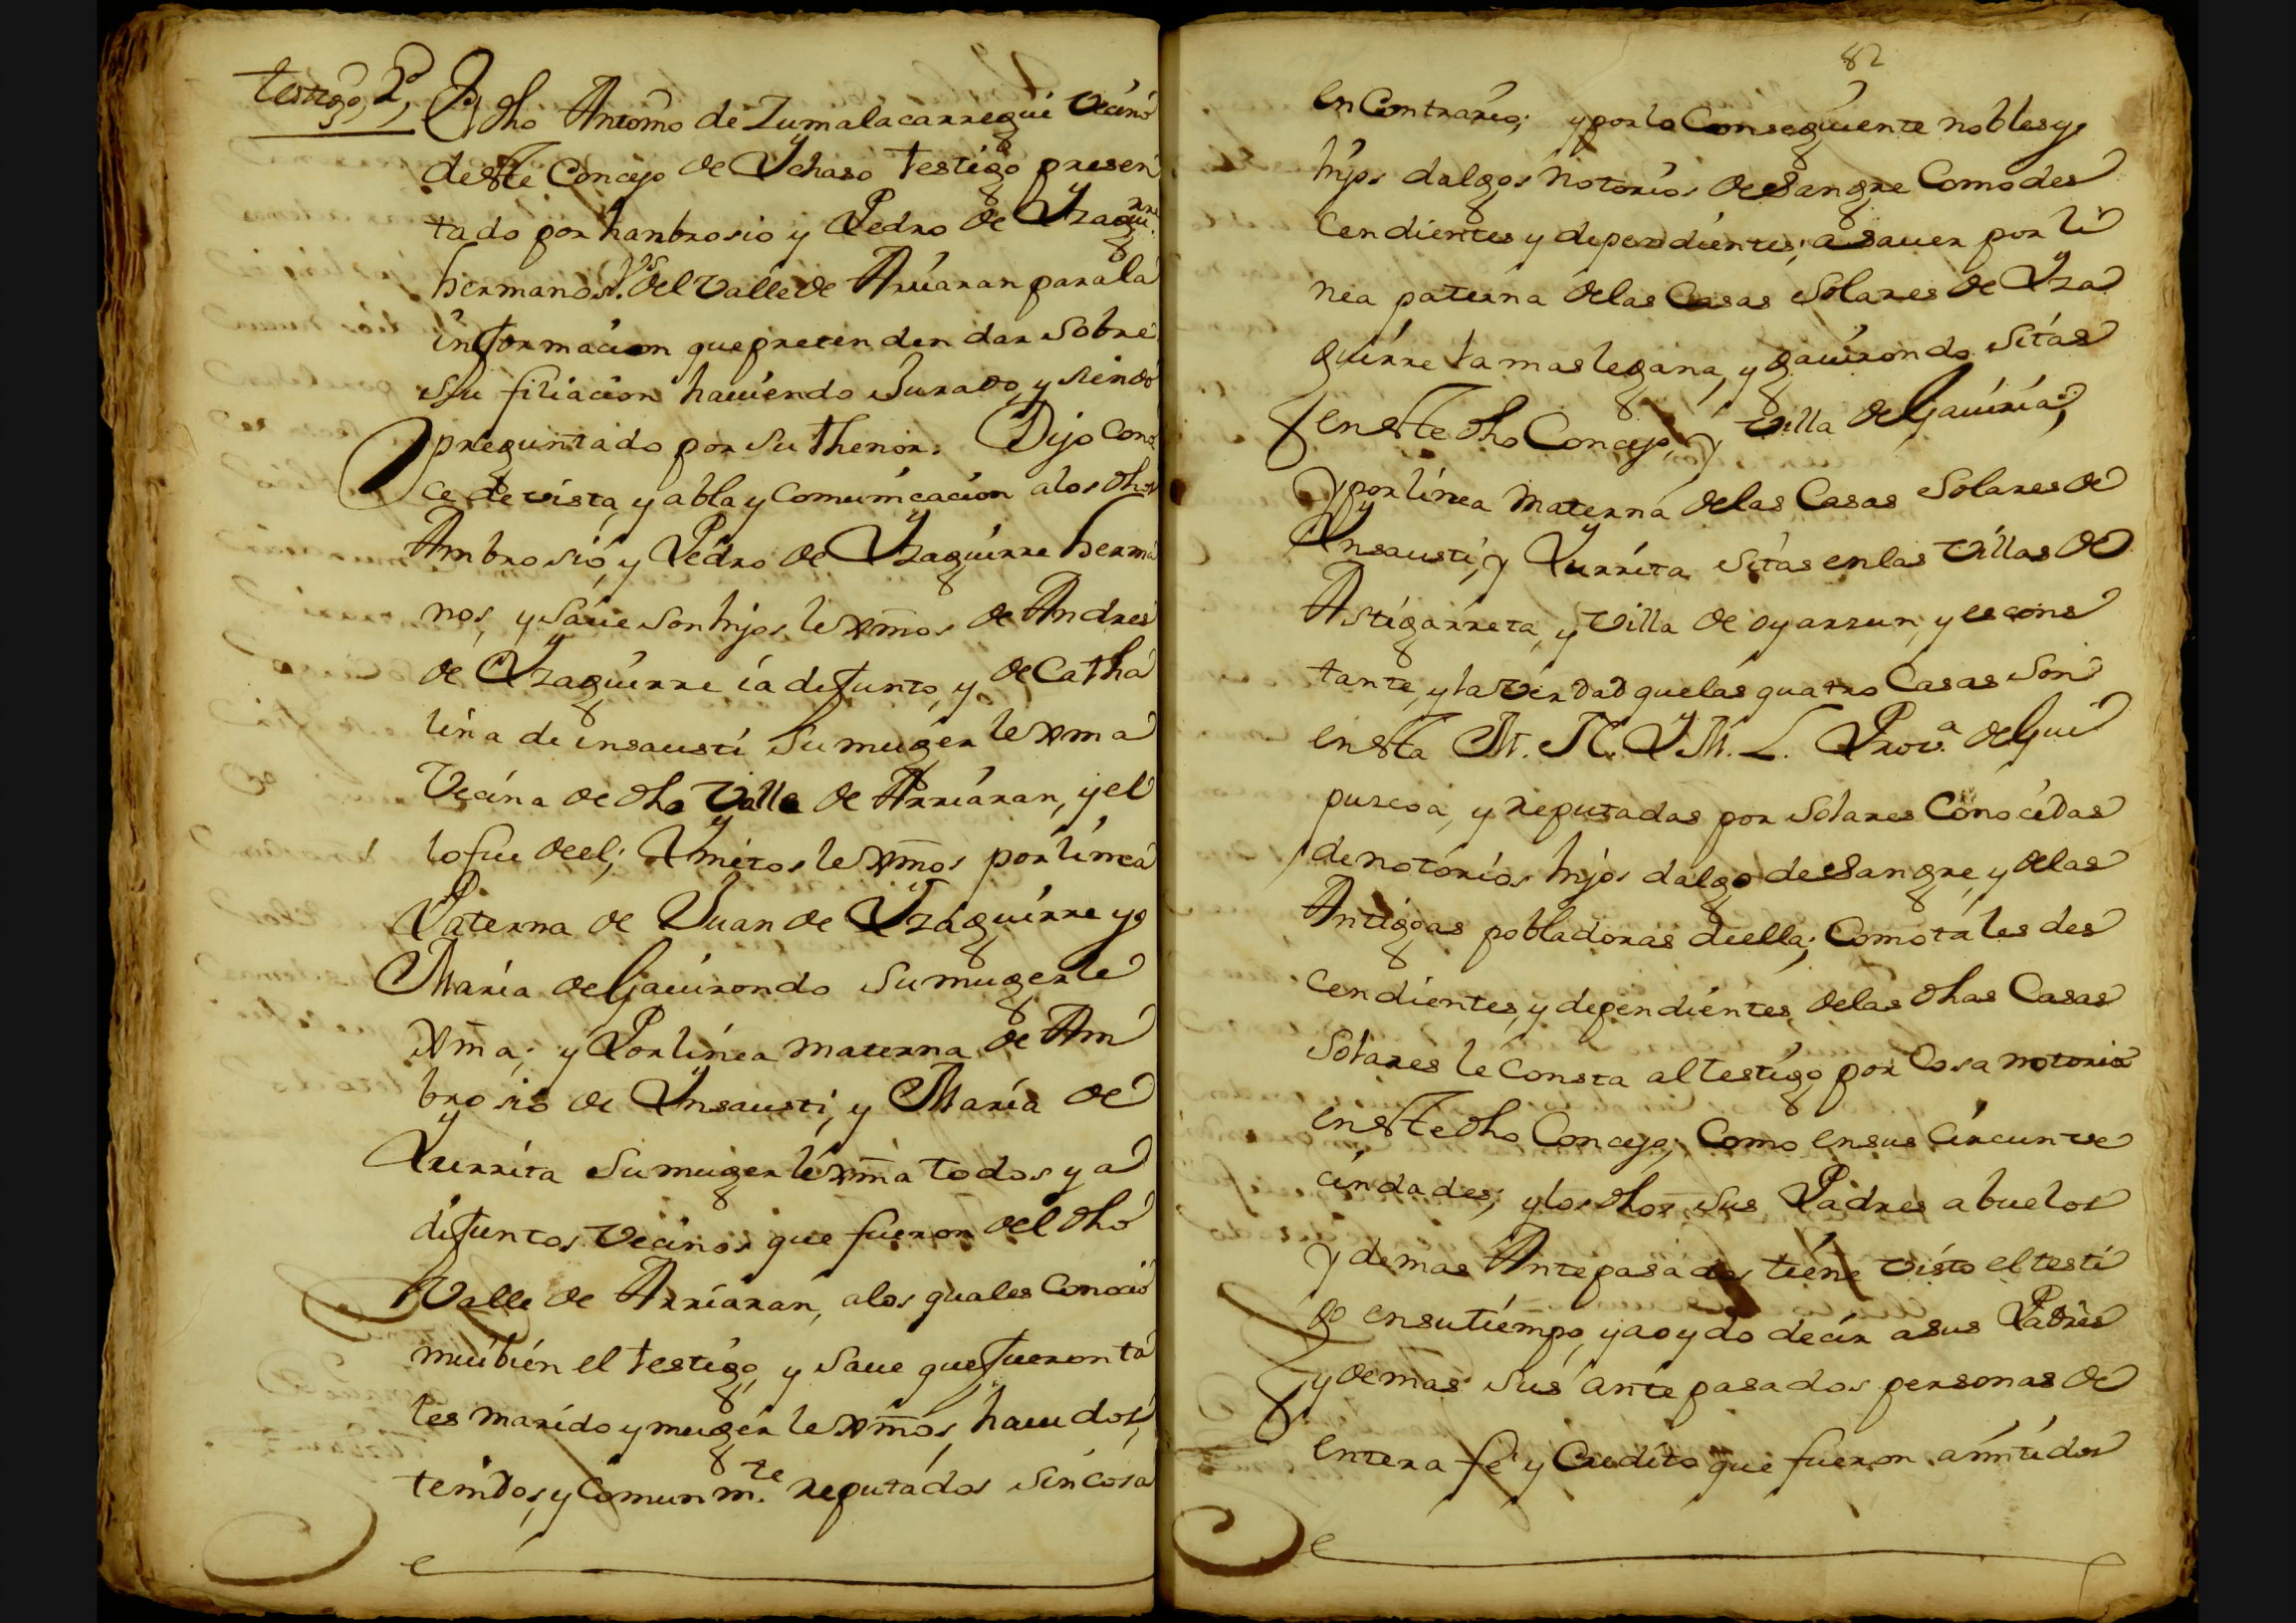 testigo, 2º, El dho Antonio de Zumalacarregui vecino
deste Concejo de Ychaso testigo presen
tado por hambrosio y Pedro de Yzaguirre
hermanos Vºs del valle de Arriaran para la
informacion que pretenden dar sobre
su filiacion haviendo Jurado, y siendo
preguntado por su thenor. Dijo Cono
ce de vista, y abla y Comunicacion a los dhos
Ambrosio, y Pedro de Yzaguirre herma
nos, y save son hijos lexmos de Andres
de Yzaguirre ia difunto, y de Catha
lina de insausti su muger lexma
Vecina de dho Valle de Arriaran, y el
lo fue del; Ynietos lexmos por linea
Paterna de Juan de Yzaguirre y
Maria de Gavirondo su muger le
xma; y Por linea materna de Am
brosio de Ynsausti, y Maria de
Yurrita su muger lexma todos ya
difuntos vecinos que fueron del dho
Valle de Arriaran, a los quales Conocio
mui bien el testigo, y save que fueron ta
les marido y muger lexmos, havidos,
tenidos, y Comunmte. reputados sin cosa
82
en Contrario; y por lo Conseguiente nobles y
hijos dalgos notorios de Sangre Como des
Cendientes y dependientes; a saver por li
nea paterna de las Casas Solares de Yza
guirre la mas legana, y gavirondo sitas
en este dho Concejo, y villa de Gaviria;
y por linea Materna de las Casas Solares de
Ynsausti, y Yurrita sitas en las Villas de
Astigarreta, y villa de oyarzun, y es cons
tante, y la verdad que las quatro Casas son
en esta M. N. Y M. L. Prova. de Gui
puzcoa, y reputadas por Solares Conocidas
de notorios hijos dalgo de Sangre, y de las
Antiguas pobladoras de ella; Como tales des
Cendientes, y dependientes de las dhas Casas
Solares le Consta al testigo por Cosa notoria
en este dho Concejo; Como en sus Circunve
cindades; y los dhos sus Padres abuelos
y demas Antepasados tiene visto el testi
go en su tiempo, y a oydo decir a sus Padres
y demas sus ante pasados personas de
entera fe y Credito que fueron admitidos